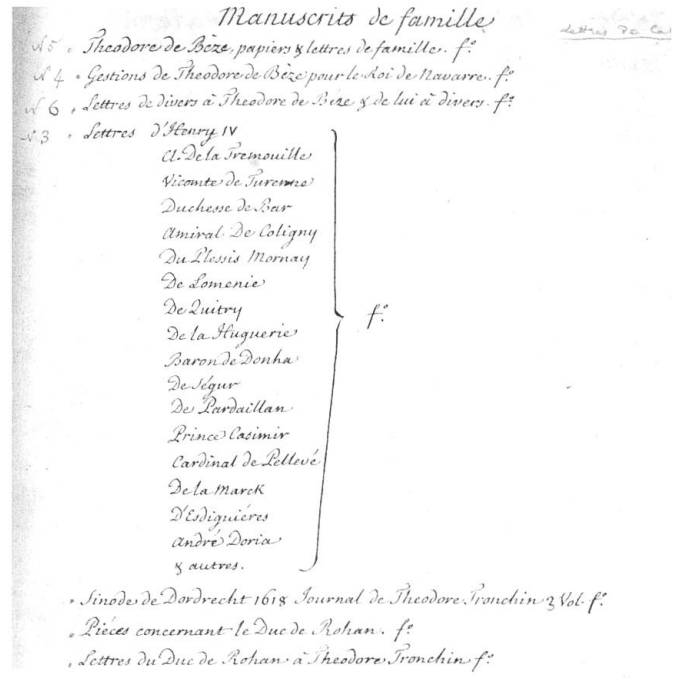 Manuscrits de famille
Lettres De Ca
N 5 . Theodore de Bèze, papiers & lettres de famille. fº.
N 4 . Gestions de Theodore de Bèze pour le Roi de Navarre. fº.
N 6 . Lettres de divers à Theodore de Bèze & de lui à divers. fº.
N 3 . Lettres d'Henry IV
Cl. De la Tremouille
Vicomte de Turenne
Duchesse de Bar
Amiral De Coligny
Du Plessis Mornay
De Lomenie
De Quitry
De la Huguerie
fº.
Baron de Donha
De Ségur
De Pardaillan
Prince Casimir
Cardinal de Pellevé
De la Marck
D'Esdiguiéres
André Doria
& autres.
. Sinode de Dordrecht 1618 Journal de Theodore Tronchin Vol. fº.
. Piéces concernant le Duc de Rohan. fº.
. Lettres du Duc de Rohan à Theodore Tronchin fº.